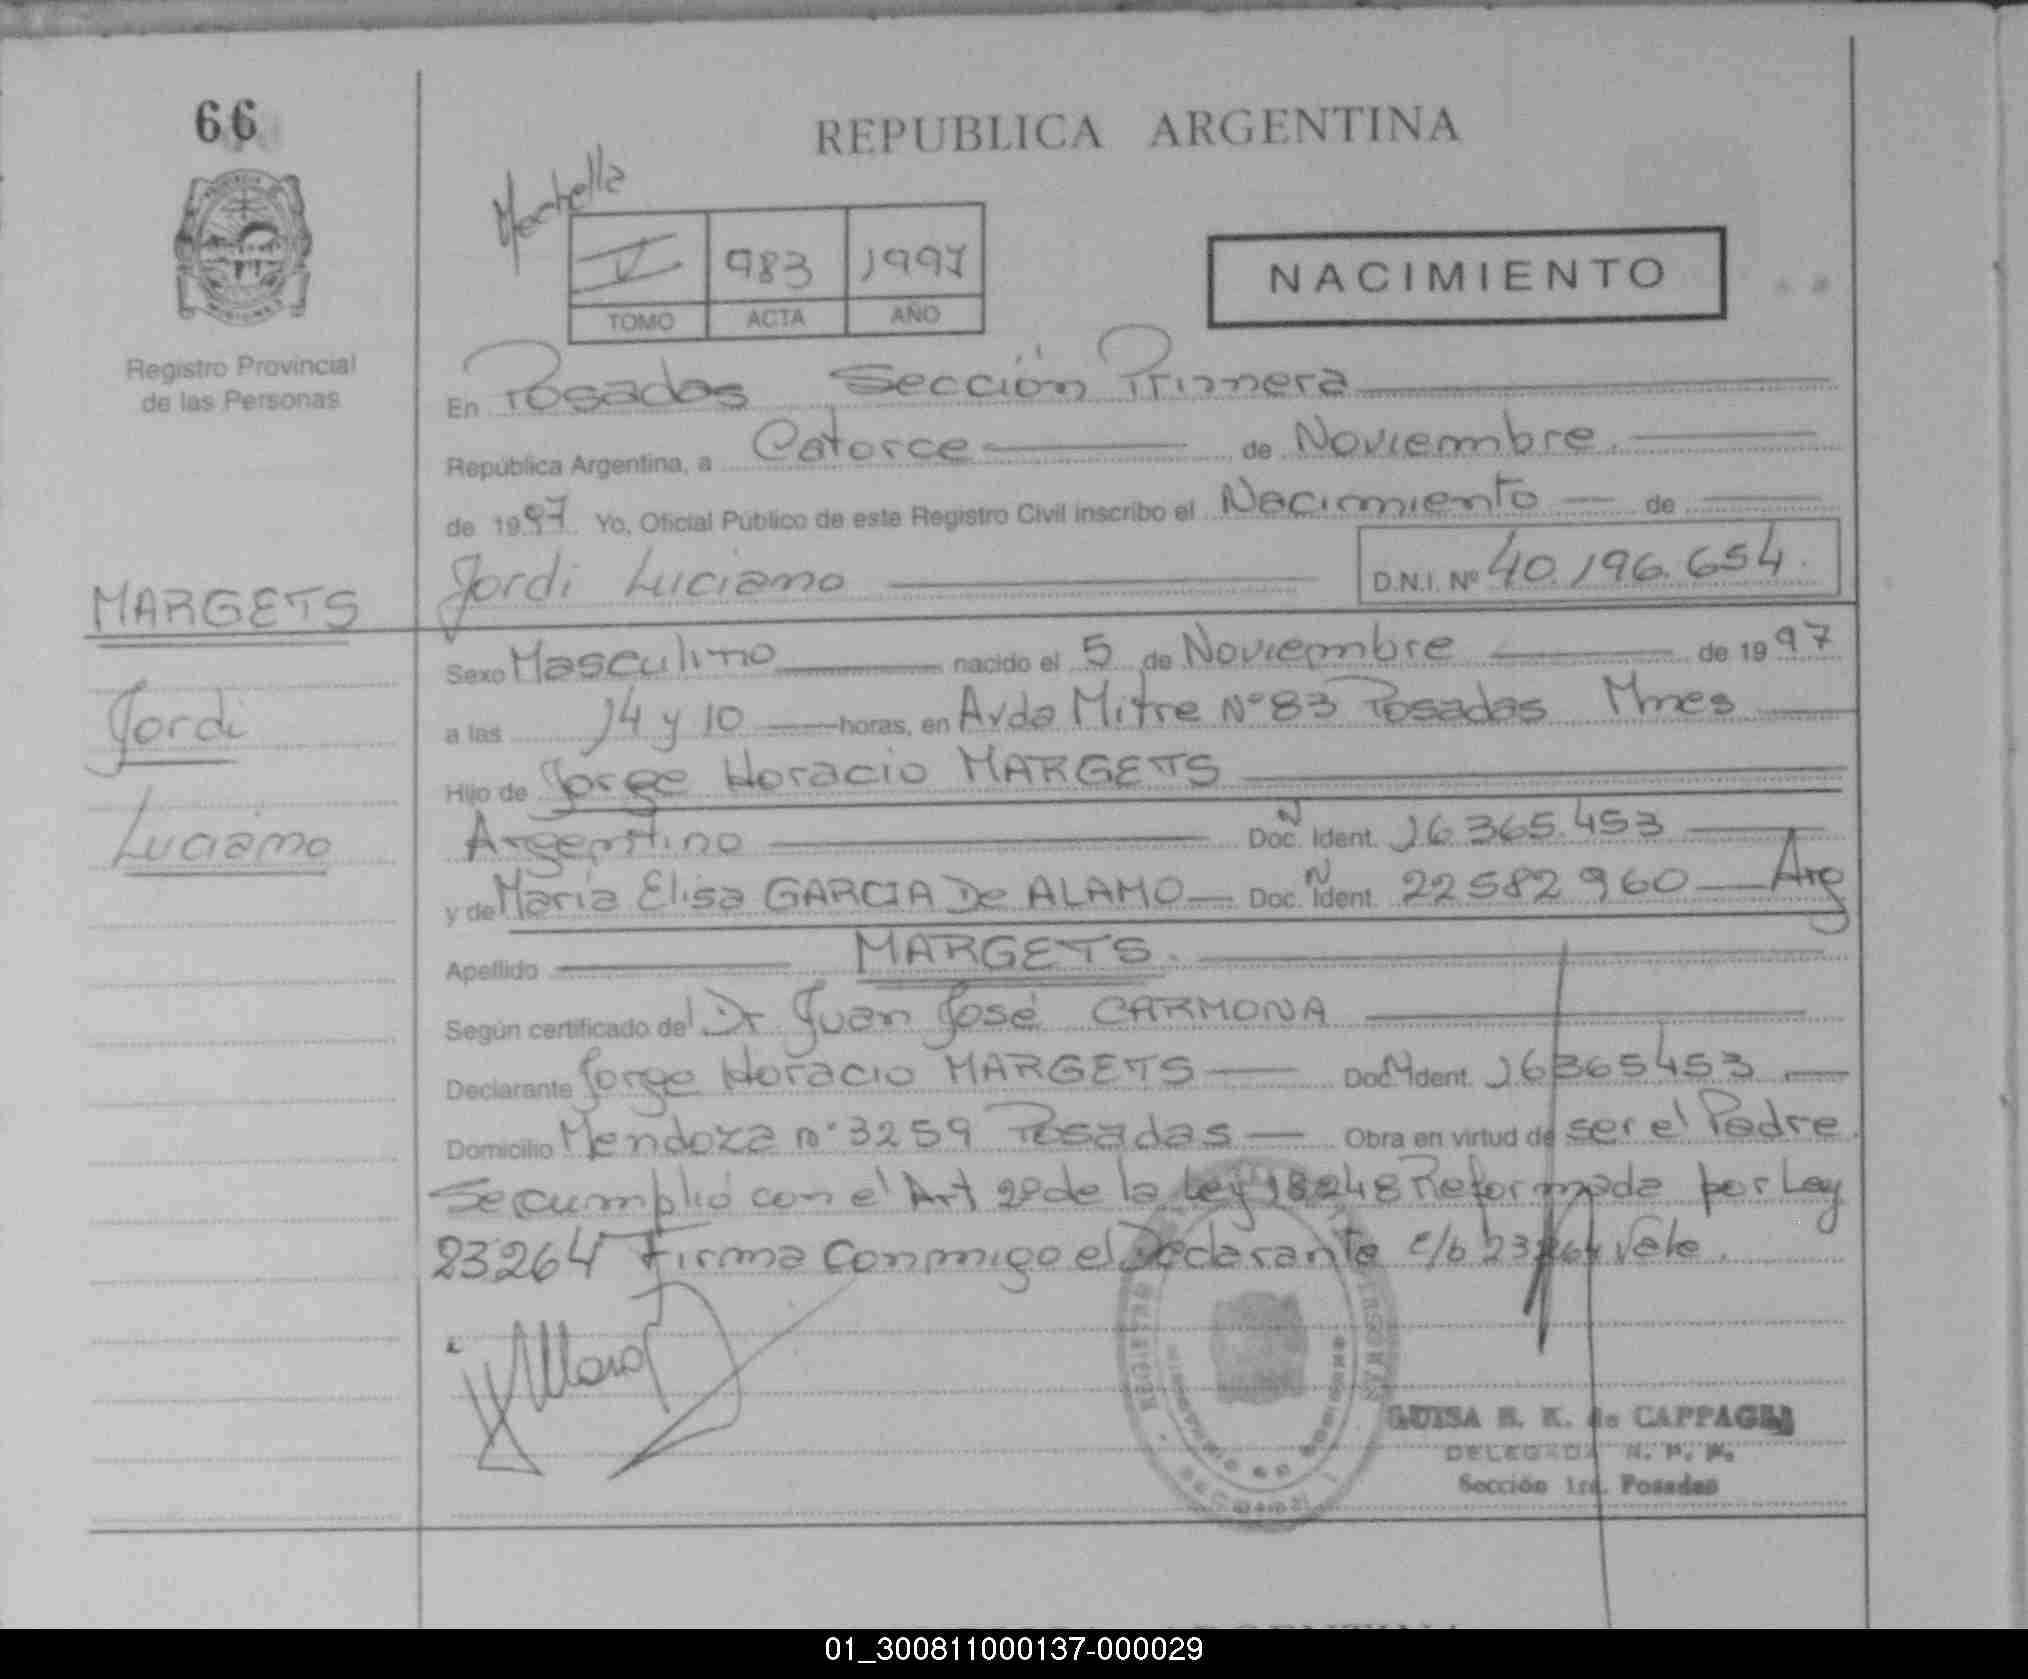 66
REPUBLICA ARGENTINA
V 983 1997
TOMO ACTA AÑO
NACIMIENTO
Registro Provincial
de las Personas
En Posadas Sección Primera
República Argentina, a Catorce de Noviembre.
de 1997 Yo, Oficial Público de este Registro Civil inscribo el Nacimiento de
Jordi Luciano D.N.I. Nº 40.196.654.
MARGETS
Jordi
Luciano
Sexo Masculino nacido el 5 de Noviembre de 1997
a las 14 y 10 horas, en Avda Mitre Nº 83 Posadas Mnes
Hijo de Jorge Horacio MARGETS
Argentino Doc. N Ident. 16.365.453
y de María Elisa GARCIA De ALAMO Doc. N Ident. 22582960 Arg
Apellido MARGETS.
Según certificado del Dr Juan José CARMONA
Declarante Jorge Horacio MARGETS Doc. N Ident. 16365453
Domicilio Mendoza nº 3259 Posadas Obra en virtud de ser el Padre.
Se cumplió con el Art 2º de la Ley 18248 Reformada por Ley
23264 Firma Conmigo el Declarante e/b 23264 Vale.
LUISA B. K. de CAPPAGLI
DELEGADA R. P. P.
Sección 1ra. Posadas
01_300811000137-000029